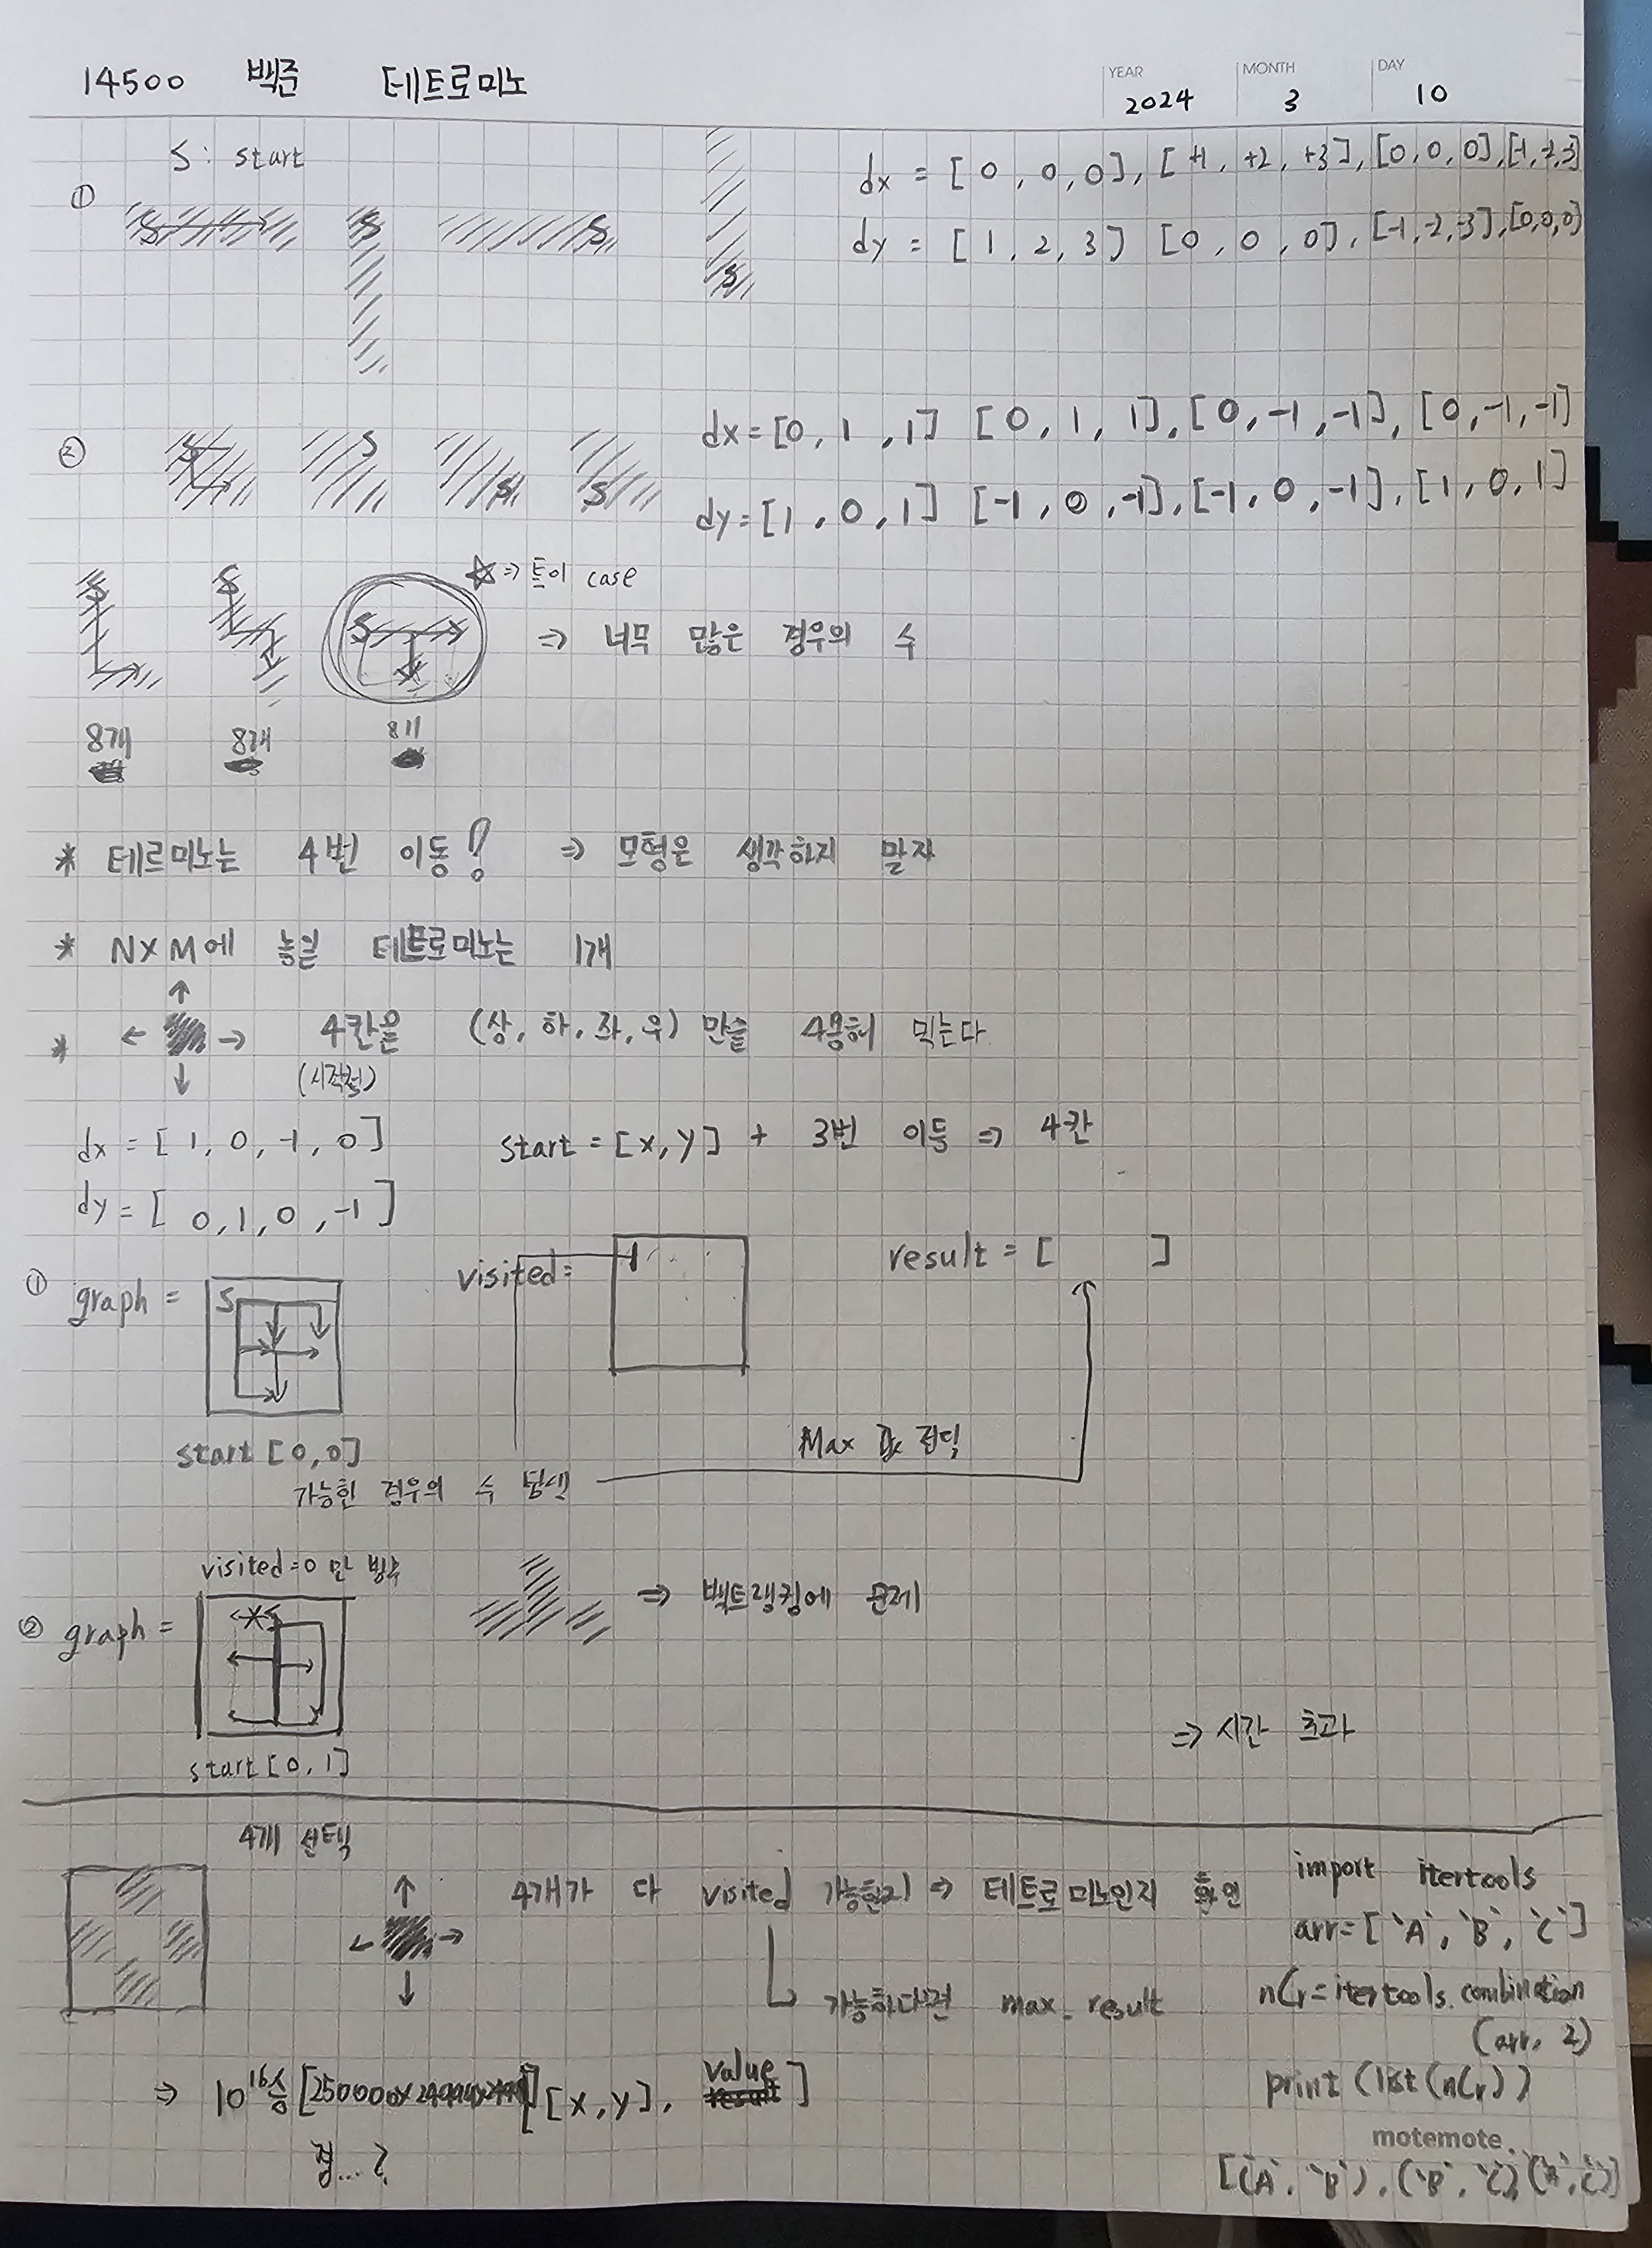 14500 백준 테트로미노
YEAR MONTH DAY
2024 3 10
S: start
①
S S S S
dx = [0, 0, 0], [+1, +2, +3], [0, 0, 0], [-1,-2,-3]
dy = [1, 2, 3] [0, 0, 0], [-1,-2,-3], [0,0,0]
②
S S S S
dx=[0, 1, 1] [0, 1, 1], [0, -1, -1], [0, -1, -1]
dy=[1, 0, 1] [-1, 0, -1], [-1, 0, -1], [1, 0, 1]
☆ => 특이 case
S S S => 너무 많은 경우의 수
8개 8개 8개
* 테르미노는 4번 이동! => 모형은 생각하지 말자
* NXM에 놓일 테트로미노는 1개
* 4칸을 (상, 하, 좌, 우) 만을 먹는다
(시작점)
dx = [1, 0, -1, 0] start = [x, y] + 3번 이동 => 4칸
dy = [0, 1, 0, -1]
① graph = S visited= 1 result = [ ]
start [0, 0] Max 값 전달
가능한 경우의 수 탐색
visited=0 만 방수
② graph = => 백트랭킹에 문제
start [0, 1] => 시간 초과
4개 선택
4개가 다 visited 가능한지 => 테트로미노인지 확인
가능하다면 max_result
=> 10^16승 [250000x [x, y], value result]
점...?
import itertools
arr=[`A`, `B`, `C`]
nCr=itertools.combination
(arr, 2)
print (list(nCr))
motemote.
[(`A`, `B`), (`B`, `C`), (`A`, `C`)]